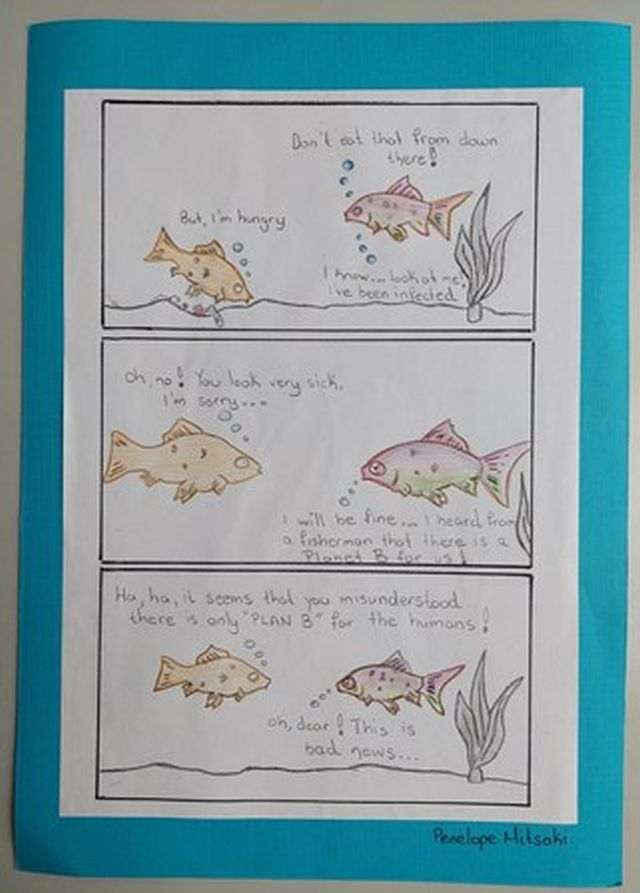 Don't eat that from down
there!
But, I'm hungry
I know... look at me,
I've been infected
Oh, no! You look very sick.
I'm sorry...
I will be fine... I heard from
a fisherman that there is a
Planet B for us!
Ha, ha, it seems that you misunderstood
there is only "PLAN B" for the humans!
oh, dear! This is
bad news...
Penelope Mitsaki